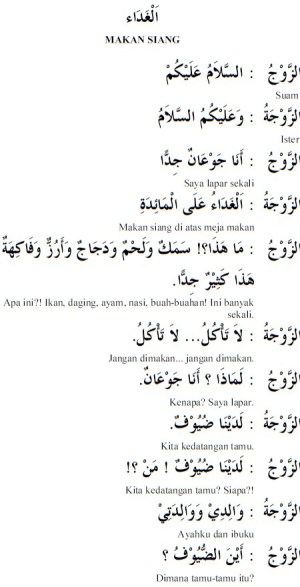 اَلْغَدَاء
MAKAN SIANG
الزَّوْجُ : السَّلاَمُ عَلَيْكُمْ
Suam
الزَّوْجَةُ : وَعَلَيْكُمُ السَّلاَمُ
Ister
الزَّوْجُ : أَنَا جَوْعَانٌ جِدًّا
Saya lapar sekali
الزَّوْجَةُ : اَلْغَدَاءُ عَلَى الْمَائِدَةِ
Makan siang di atas meja makan
الزَّوْجُ : مَا هَذَا؟! سَمَكٌ وَلَحْمٌ وَدَجَاجٌ وَأَرُزٌّ وَفَاكِهَةٌ
هَذَا كَثِيْرٌ جِدًّا.
Apa ini?! Ikan, daging, ayam, nasi, buah-buahan! Ini banyak
sekali.
الزَّوْجَةُ : لاَ تَأْكُلُ... لاَ تَأْكُلْ.
Jangan dimakan... jangan dimakan.
الزَّوْجُ : لِمَاذَا ؟ أَنَا جَوْعَانٌ.
Kenapa? Saya lapar.
الزَّوْجَةُ : لَدَيْنَا ضُيُوْفٌ.
Kita kedatangan tamu.
الزَّوْجُ : لَدَيْنَا ضُيُوْفٌ ! مَنْ ؟!
Kita kedatangan tamu? Siapa?!
الزَّوْجَةُ : وَالِدِيْ وَوَالِدَتِيْ
Ayahku dan ibuku
الزَّوْجُ : أَيْنَ الضُّيُوْفُ ؟
Dimana tamu-tamu itu?